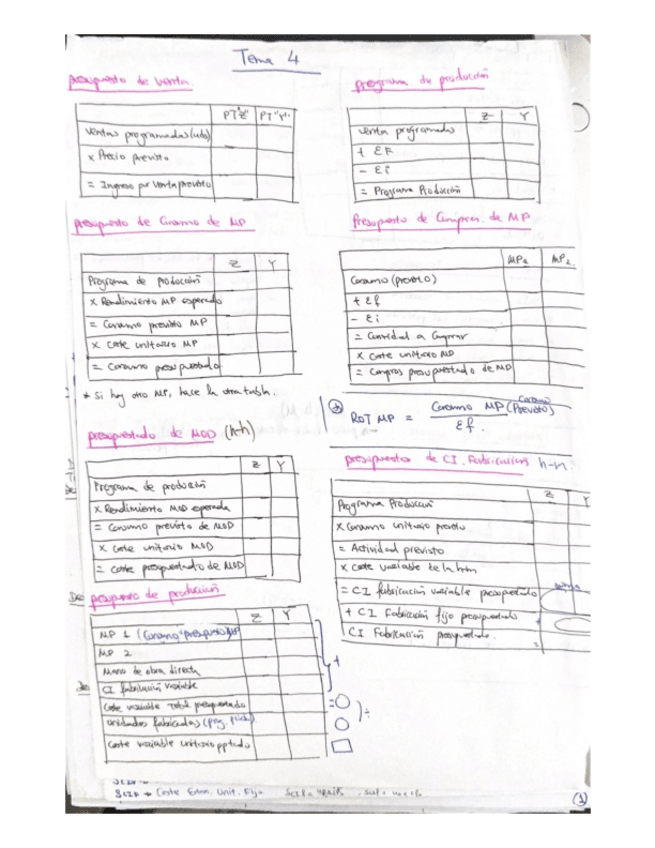 Tema 4
presupuesto de venta
PT"Z" PT"Y"
Ventas programadas (uds)
x Precio previsto
= Ingreso por venta previsto
programa de producción
Z Y
Venta programadas
+ Ef
- Ei
= Programa Producción
Presupuesto de Consumo de MP
Z Y
Programa de producción
x Rendimiento MP esperado
= Consumo previsto MP
x Coste unitario MP
= Consumo presupuestado
* Si hay otro MP, hace la otra tabla.
Presupuesto de Compras de MP
MP1 MP2
Consumo (previsto)
+ Ef
- Ei
= Cantidad a Comprar
x Coste unitario MP
= Compras presupuestado de MP
ROT MP = Consumo MP (Consumo Previsto)
Ef.
presupuestado de MOD (h-h)
Z Y
Programa de producción
x Rendimiento MOD esperada
= Consumo previsto de MOD
x Coste unitario MOD
= Coste presupuestado de MOD
presupuesto de CI. Fabricación h-m
Z Y
Programa Producción
x Consumo unitario previsto
= Actividad previsto
x Coste variable de la h-m
= CI fabricación variable presupuestado
+ CI Fabricación fijo presupuestado
CI Fabricación presupuestado
=
presupuesto de producción
Z Y
MP 1 (Consumo presupuesto MP
MP 2
Mano de obra directa
CI fabricación variable
+
Coste variable total presupuestado
=
unidades fabricadas (prog. prod).
÷
Coste variable unitario pptado
→ Coste Estan. Unit. Fijo
1